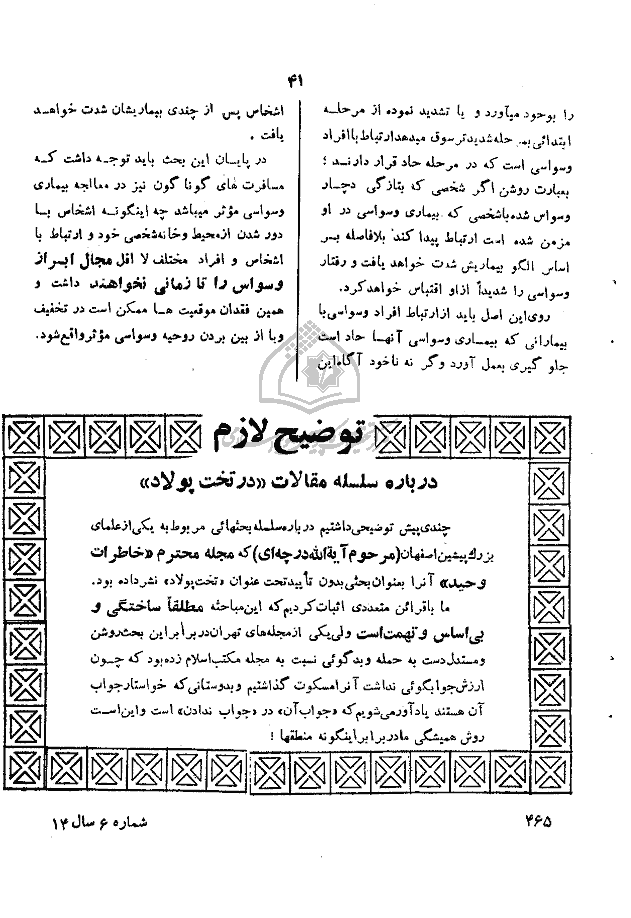 ۴۱
را بوجود میآورد و یا تشدید نموده از مرحله
ابتدائی بمرحله شدیدتر سوق میدهد ارتباط با افراد
وسواسی است که در مرحله حاد قرار دارند ؛
بعبارت روشن اگر شخصی که بتازگی دچار
وسواس شده با شخصی که بیماری وسواسی در او
مزمن شده است ارتباط پیدا کند بلافاصله بر
اساس الگو بیماریش شدت خواهد یافت و رفتار
وسواسی را شدیداً از او اقتباس خواهد کرد.
روی این اصل باید از ارتباط افراد وسواسی با
بیمارانی که بیماری وسواسی آنها حاد است
جلو گیری بعمل آورد وگر نه ناخود آگاه این
اشخاص پس از چندی بیماریشان شدت خواهد
یافت .
در پایان این بحث باید توجه داشت که
مسافرت های گونا گون نیز در معالجه بیماری
وسواسی مؤثر میباشد چه اینگونه اشخاص با
دور شدن از محیط و خانه شخصی خود و ارتباط با
اشخاص و افراد مختلف لا اقل مجال ابراز
وسواس را تا زمانی نخواهند داشت و
همین فقدان موقعیت ها ممکن است در تخفیف
ویا از بین بردن روحیه وسواسی مؤثر واقع شود.
توضیح لازم
درباره سلسله مقالات «در تخت پولاد»
چندی پیش توضیحی داشتیم درباره سلسله بحثهائی مربوط به یکی از علمای
بزرك پیشین اصفهان (مرحوم آیة الله درچه ای) که مجله محترم «خاطرات
وحید» آنرا بعنوان بحثی بدون تأیید تحت عنوان «تخت پولاد» نشر داده بود.
ما با قرائن متعددی اثبات کردیم که این مباحثه مطلقاً ساختگی و
بی اساس و تهمت است ولی یکی از مجله های تهران در برابر این بحث روشن
و مستدل دست به حمله و بدگوئی نسبت به مجله مکتب اسلام زده بود که چون
ارزش جوابگوئی نداشت آنرا مسکوت گذاشتیم و بدوستانی که خواستار جواب
آن هستند یادآور می شویم که «جواب آن» در «جواب ندادن» است و این است
روش همیشگی ما در برابر اینگونه منطقها !
۴۶۵
شماره ۶ سال ۱۴